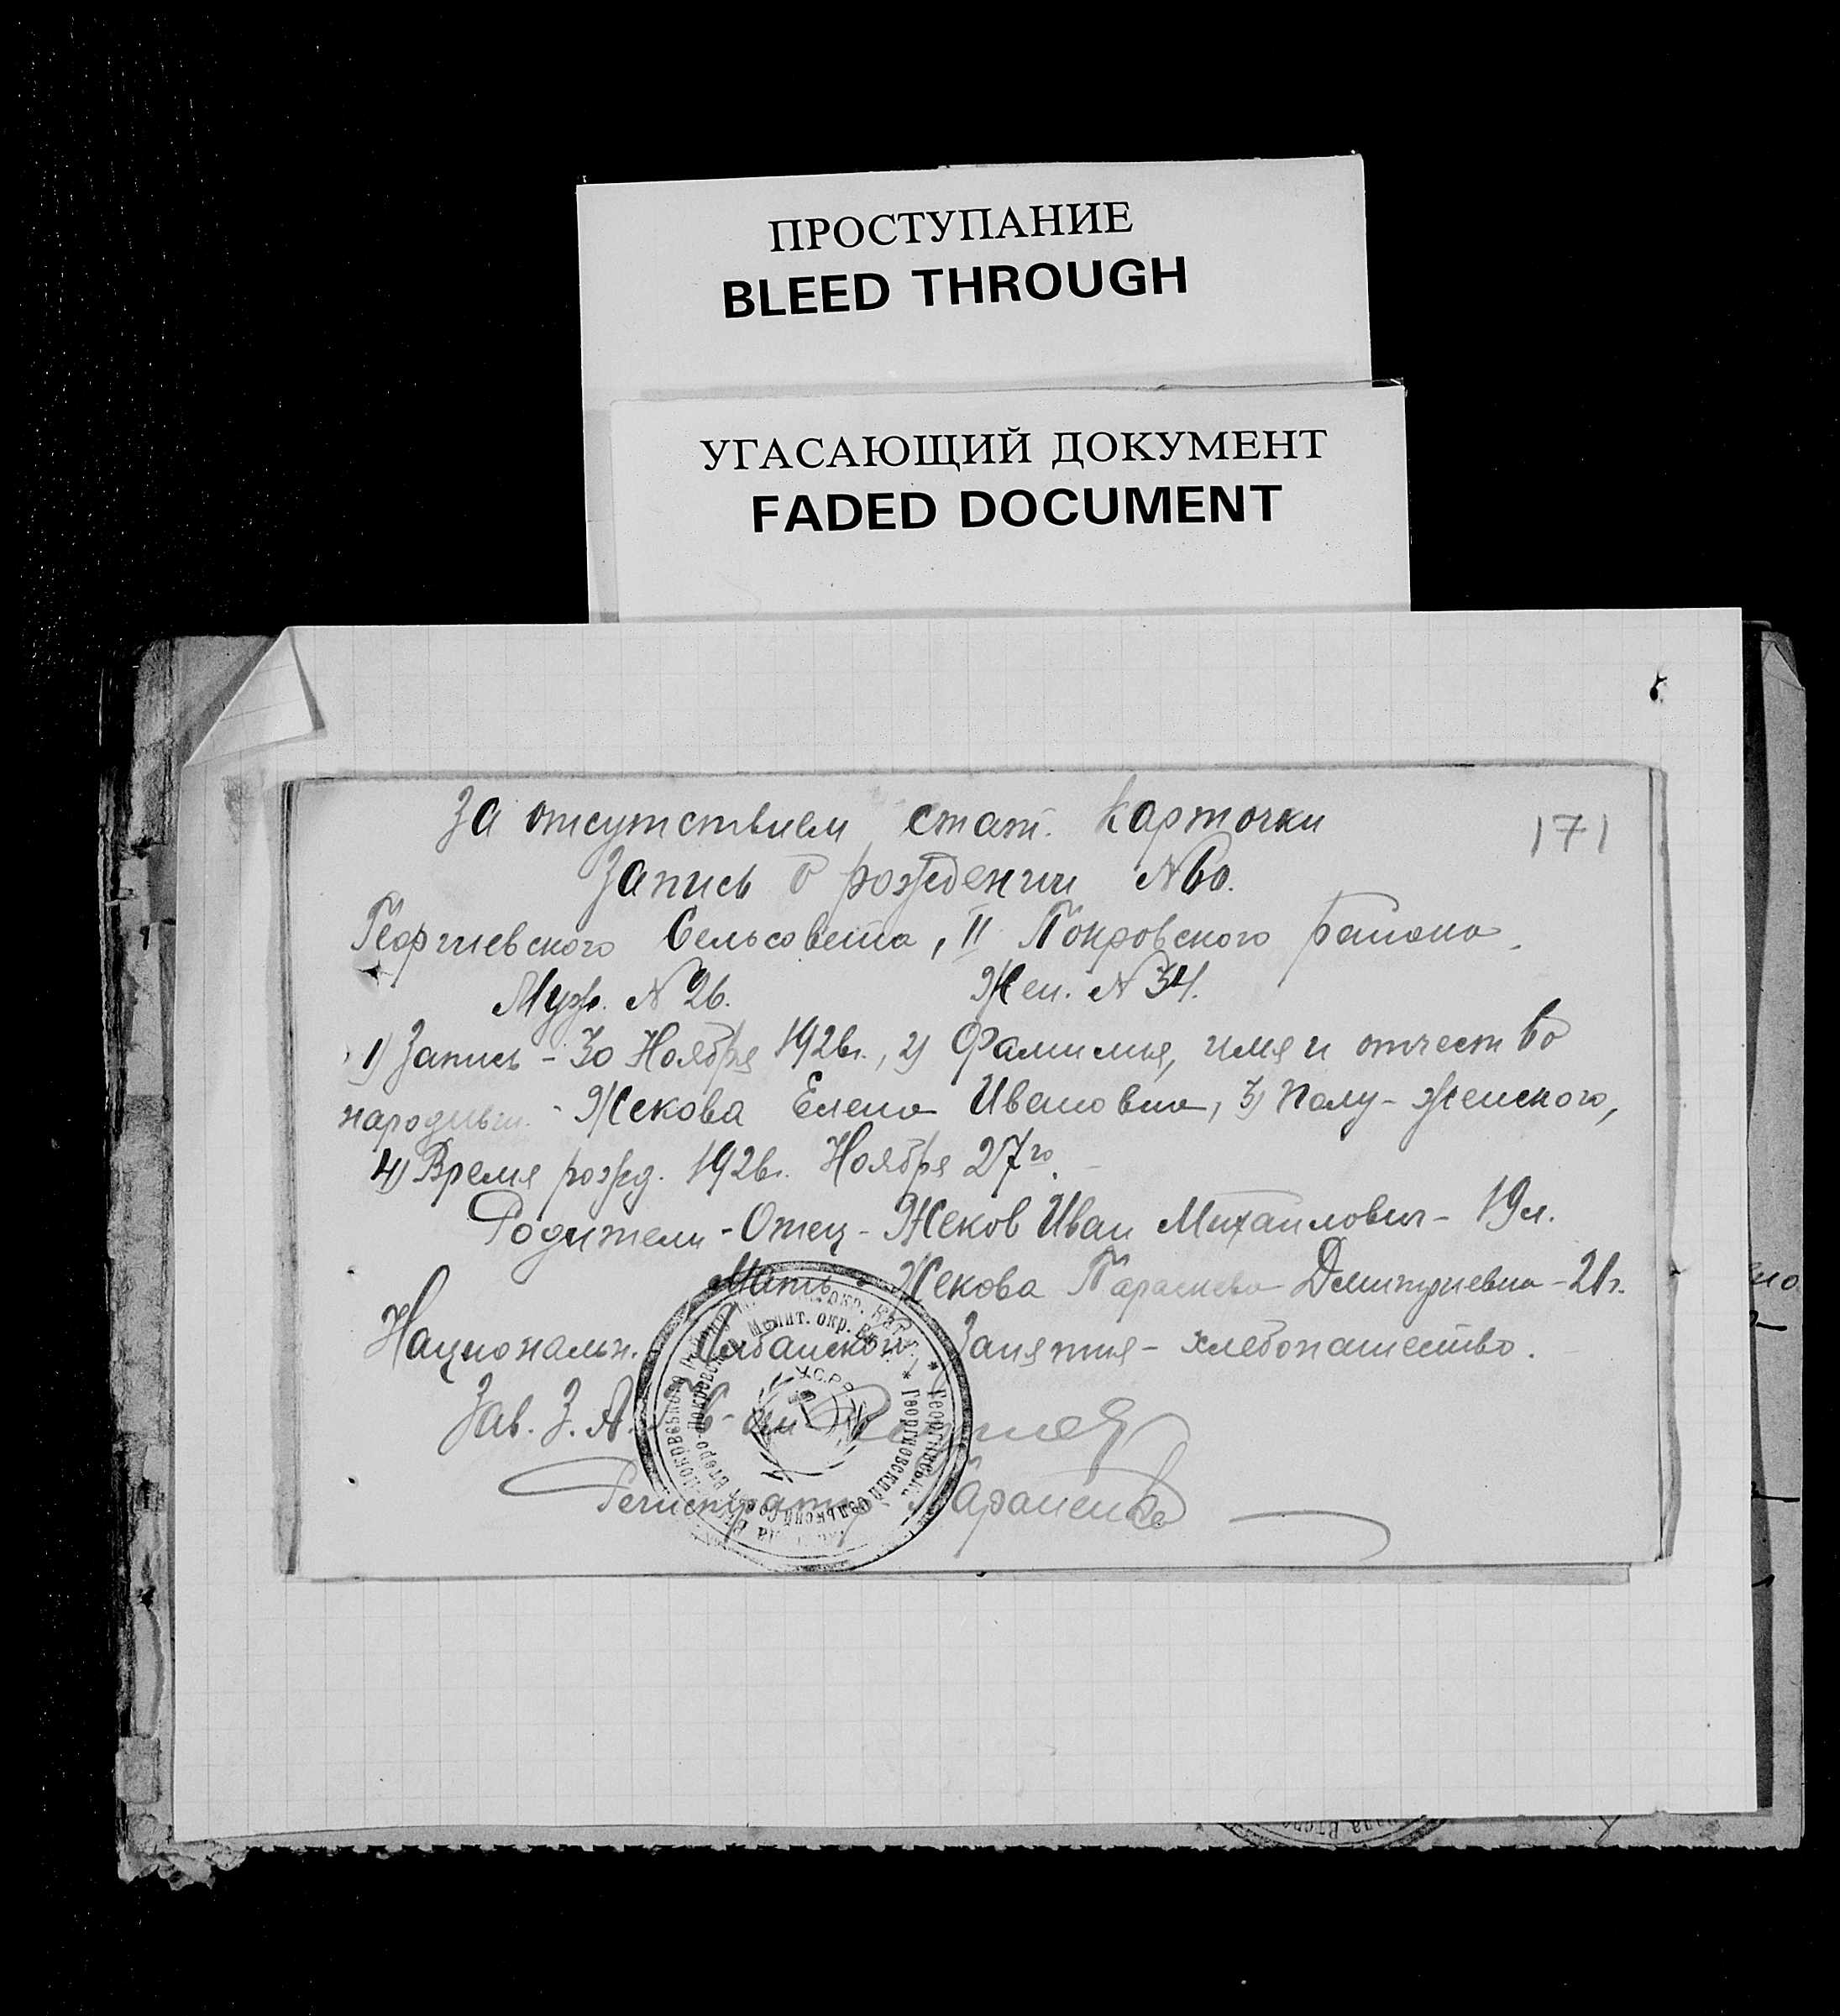 ПРОСТУПАНИЕ
BLEED THROUGH
УГАСАЮЩИЙ ДОКУМЕНТ
FADED DOCUMENT
171
За отсутствием стат. карточки
Запись о рождении N 60.
Георгиевского Сельсовета, II Покровского района.
Муж. N 26. Жен. N 34.
1) Запись - 30 Ноября 1926г., 2) Фамилия, имя и отчество
народивш. - Жекова Елена Ивановна, 3) Полу - женского,
4) Время рожд. 1926г. Ноября 27го.
Родители - Отец - Жеков Иван Михайлович - 19л.
Мать - Жекова Параскева Дмитриевна - 21г.
Национальн. Албанской Занятия - хлебопашество.
Зав. З. А.
Регистратор
Мелит. окр.
У.С.Р.Р.
Георгиевский Сельский Совет